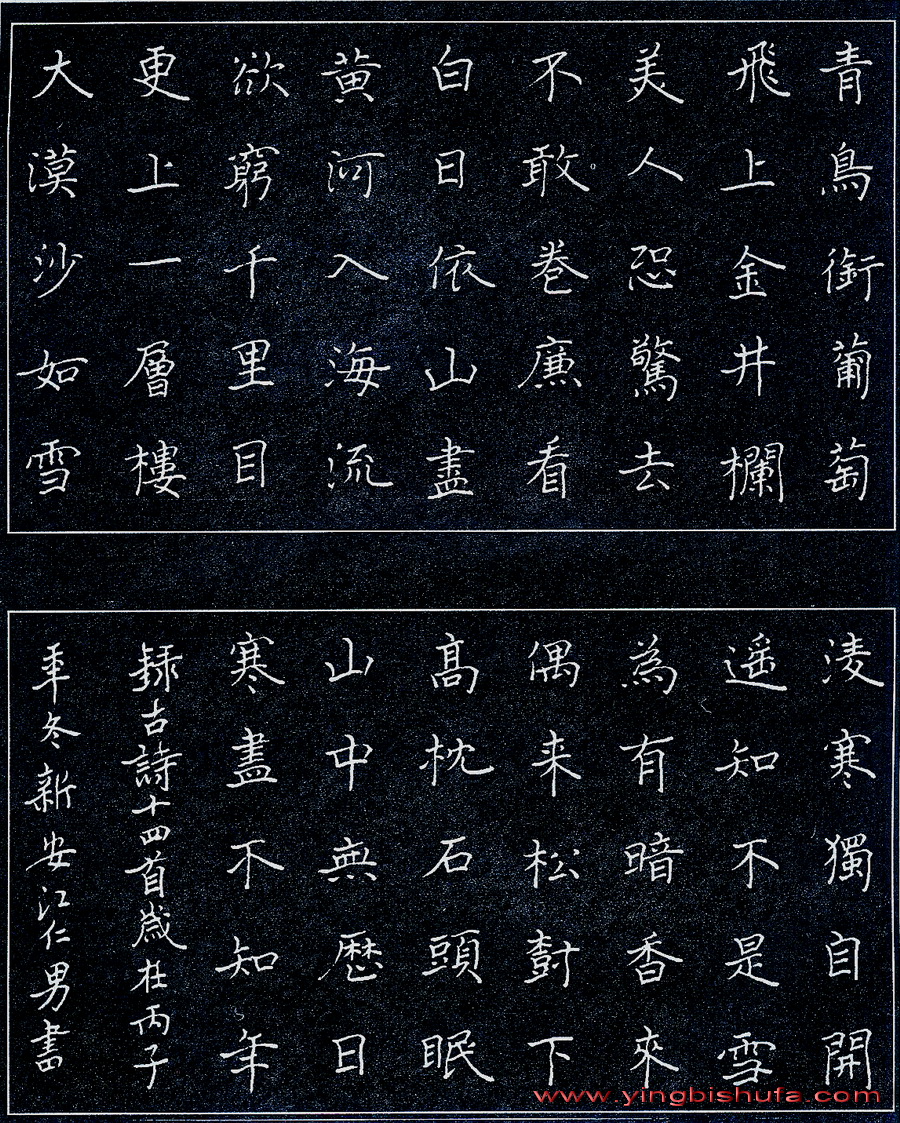 青鳥銜葡萄
飛上金井欄
美人恐驚去
不敢卷廉看
白日依山盡
黄河入海流
欲窮千里目
更上一層樓
大漠沙如雪
淩寒獨自開
遥知不是雪
為有暗香來
偶来松對下
高枕石頭眠
山中無歷日
寒盡不知年
録古詩十四首歲在丙子
年冬新安江仁男書
www.yingbishufa.com